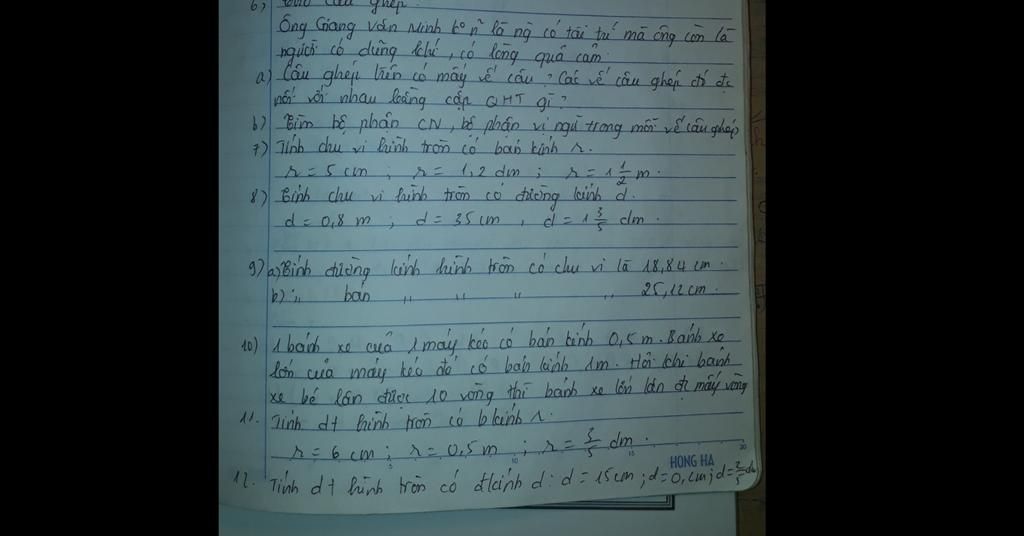 6)
Ông Giang Văn Minh kº n~ là ng` có tài trí mà ông còn là
người có dũng khí, có lòng quả cảm.
a) Câu ghép trên có mấy vế câu? Các vế câu ghép đó đc
nối với nhau bằng cặp QHT gì?
b) Tìm bộ phận CN, bộ phận vị ngữ trong mỗi vế câu ghép
7) Tính chu vi hình tròn có bán kính r.
r = 5 cm ; r = 1,2 dm ; r = 1 1/2 m.
8) Tính chu vi hình tròn có đường kính d.
d = 0,8 m ; d = 35 cm , d = 1 3/5 dm.
9) a) Tính đường kính hình tròn có chu vi là 18,84 cm.
b) ,, bán ,, ,, ,, ,, 25,12 cm.
10) 1 bánh xe của 1 máy kéo có bán kính 0,5 m. Bánh xe
lớn của máy kéo đó có bán kính 1m. Hỏi khi bánh
xe bé lăn được 10 vòng thì bánh xe lớn lăn đc mấy vòng
11. Tính dt hình tròn có b kính r.
r = 6 cm ; r = 0,5 m ; r = 3/5 dm.
HONG HA
12. Tính dt hình tròn có đkính d: d = 15cm ; d = 0, cm ; d = /5 dm